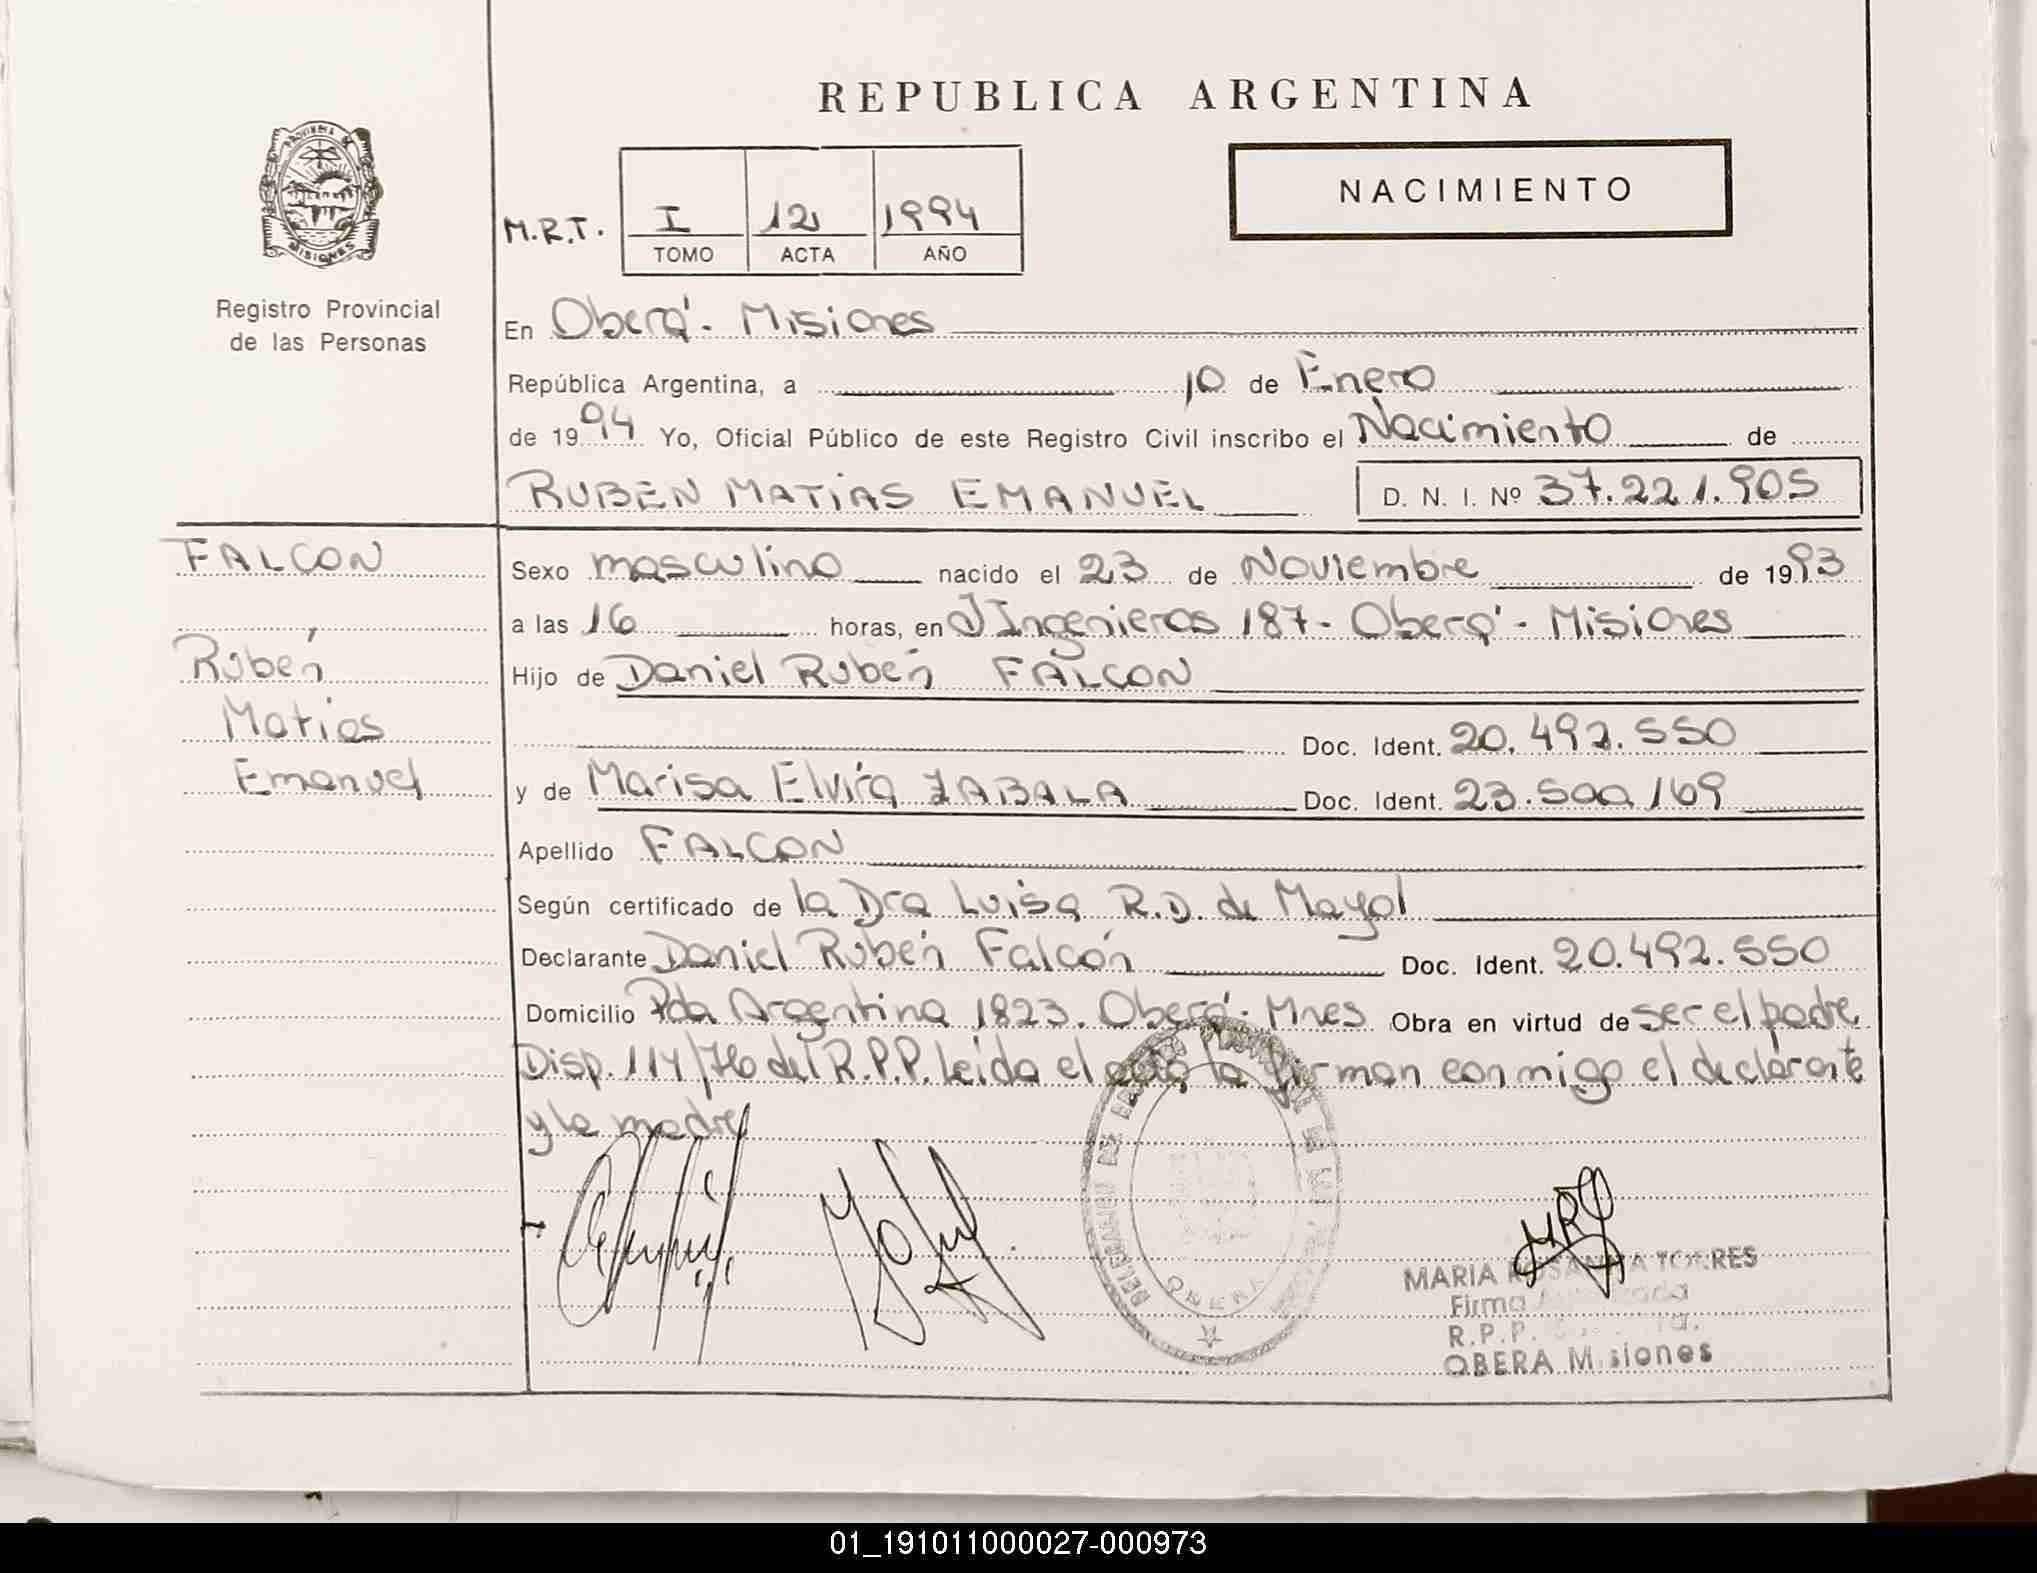 REPUBLICA ARGENTINA
PROVINCIA DE
MISIONES
Registro Provincial
de las Personas
NACIMIENTO
M.R.T. I 12 1994
TOMO ACTA AÑO
En Oberá - Misiones
República Argentina, a 10 de Enero
de 1994 Yo, Oficial Público de este Registro Civil inscribo el Nacimiento de
RUBEN MATIAS EMANUEL D. N. I. Nº 37.221.905
FALCON
Rubén
Matias
Emanuel
Sexo masculino nacido el 23 de Noviembre de 1993
a las 16 horas, en Ingenieros 187 - Oberá - Misiones
Hijo de Daniel Rubén FALCON
Doc. Ident. 20.492.550
y de Marisa Elvira ZABALA Doc. Ident. 23.500.169
Apellido FALCON
Según certificado de la Dra Luisa R.D. de Mayol
Declarante Daniel Rubén Falcón Doc. Ident. 20.492.550
Domicilio Pda Argentina 1823. Oberá - Mnes Obra en virtud de ser el padre
Disp. 114/76 del R.P.P. Leída el acta la firman conmigo el declarante
y la madre
OBERA
MARIA TORRES
Firma
R.P.P.
OBERA Misiones
01_191011000027-000973